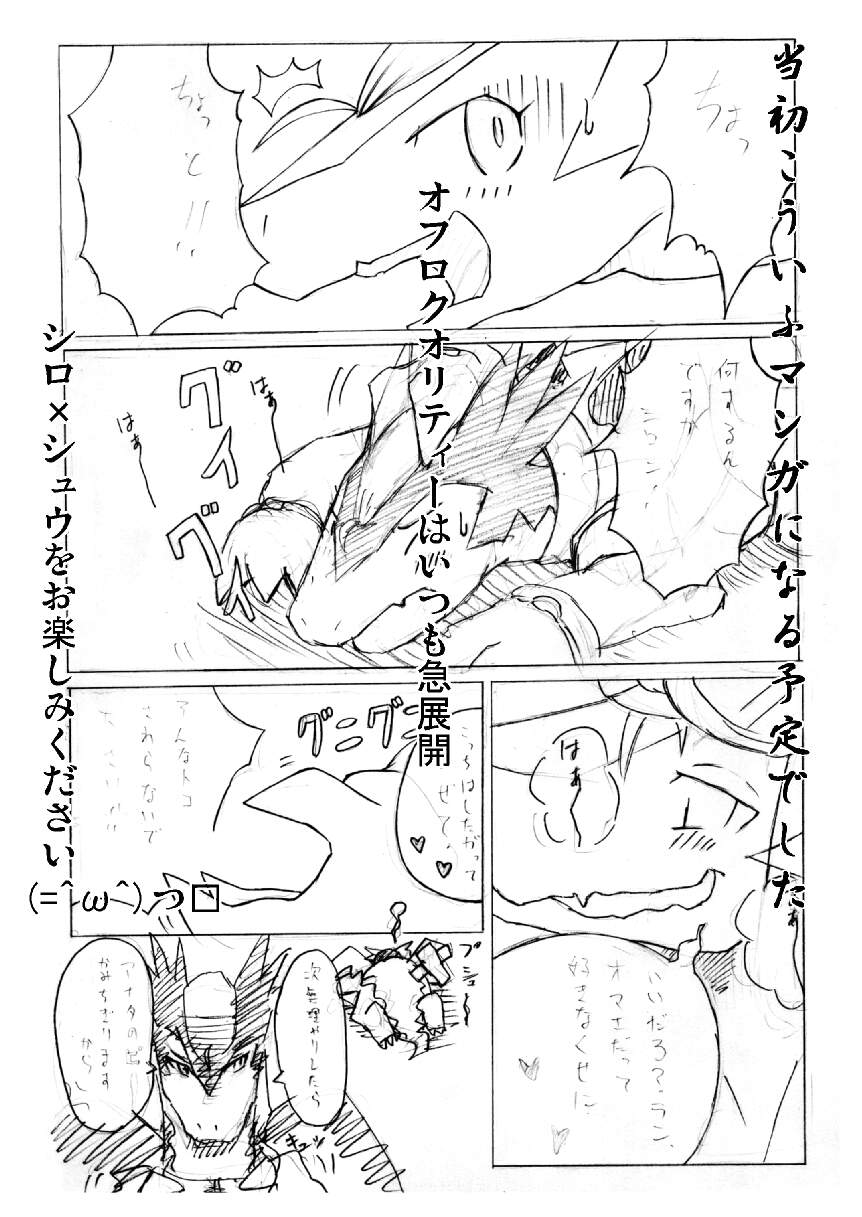 当初こういふマンガになる予定でした
オフロクオリティーはいつも急展開
シロ×シュウをお楽しみください
(=^ω^)つ□
ちょっ
ちょっと!!
何するん
ですか
はぁー
はぁー
グイ
グッ
はぁー
いいだろ?ラン、
オマエだって
好きなくせに
グニグニ
こっちはしたがって
ぜて、
そんなトコ
さわらないで
ください!!
ブシュー
次無理やりしたら
アナタの
かみちぎります
から
キュッ